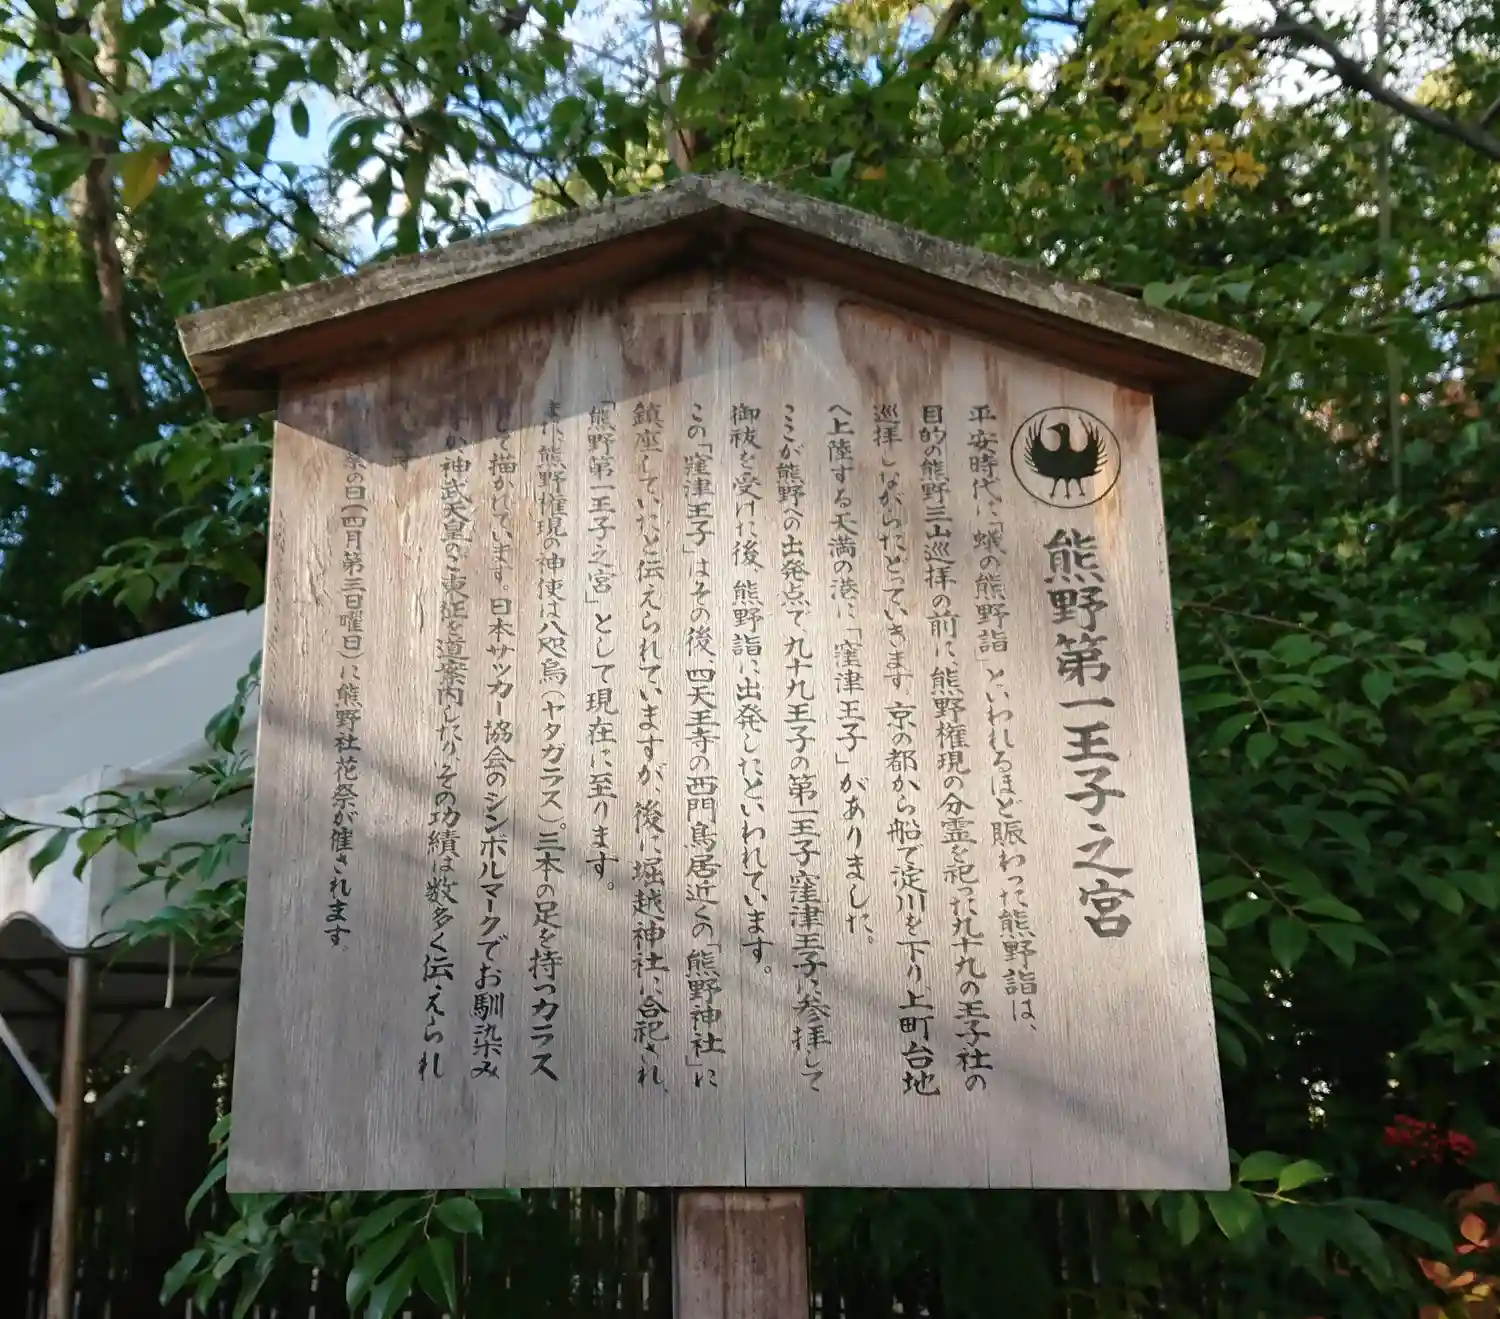 熊野第一王子之宮
平安時代に「蟻の熊野詣」といわれるほど賑わった熊野詣は、
目的の熊野三山巡拝の前に、熊野権現の分霊を祀った九十九の王子社の
巡拝しながらたどっていきます。京の都から船で淀川を下り、上町台地
へ上陸する天満の港に「窪津王子」がありました。
ここが熊野への出発点で九十九王子の第一王子窪津王子に参拝して
御祓を受けた後、熊野詣に出発したといわれています。
この「窪津王子」はその後、四天王寺の西門鳥居近くの「熊野神社」に
鎮座していたと伝えられていますが、後に堀越神社に合祀され、
「熊野第一王子之宮」として現在に至ります。
また、熊野権現の神使は八咫烏(ヤタガラス)。三本の足を持つカラス
して描かれています。日本サッカー協会のシンボルマークでお馴染み
か、神武天皇のご東征を道案内したり、その功績は数多く伝えられ
祭の日(四月第三日曜日)に熊野社花祭が催されます。